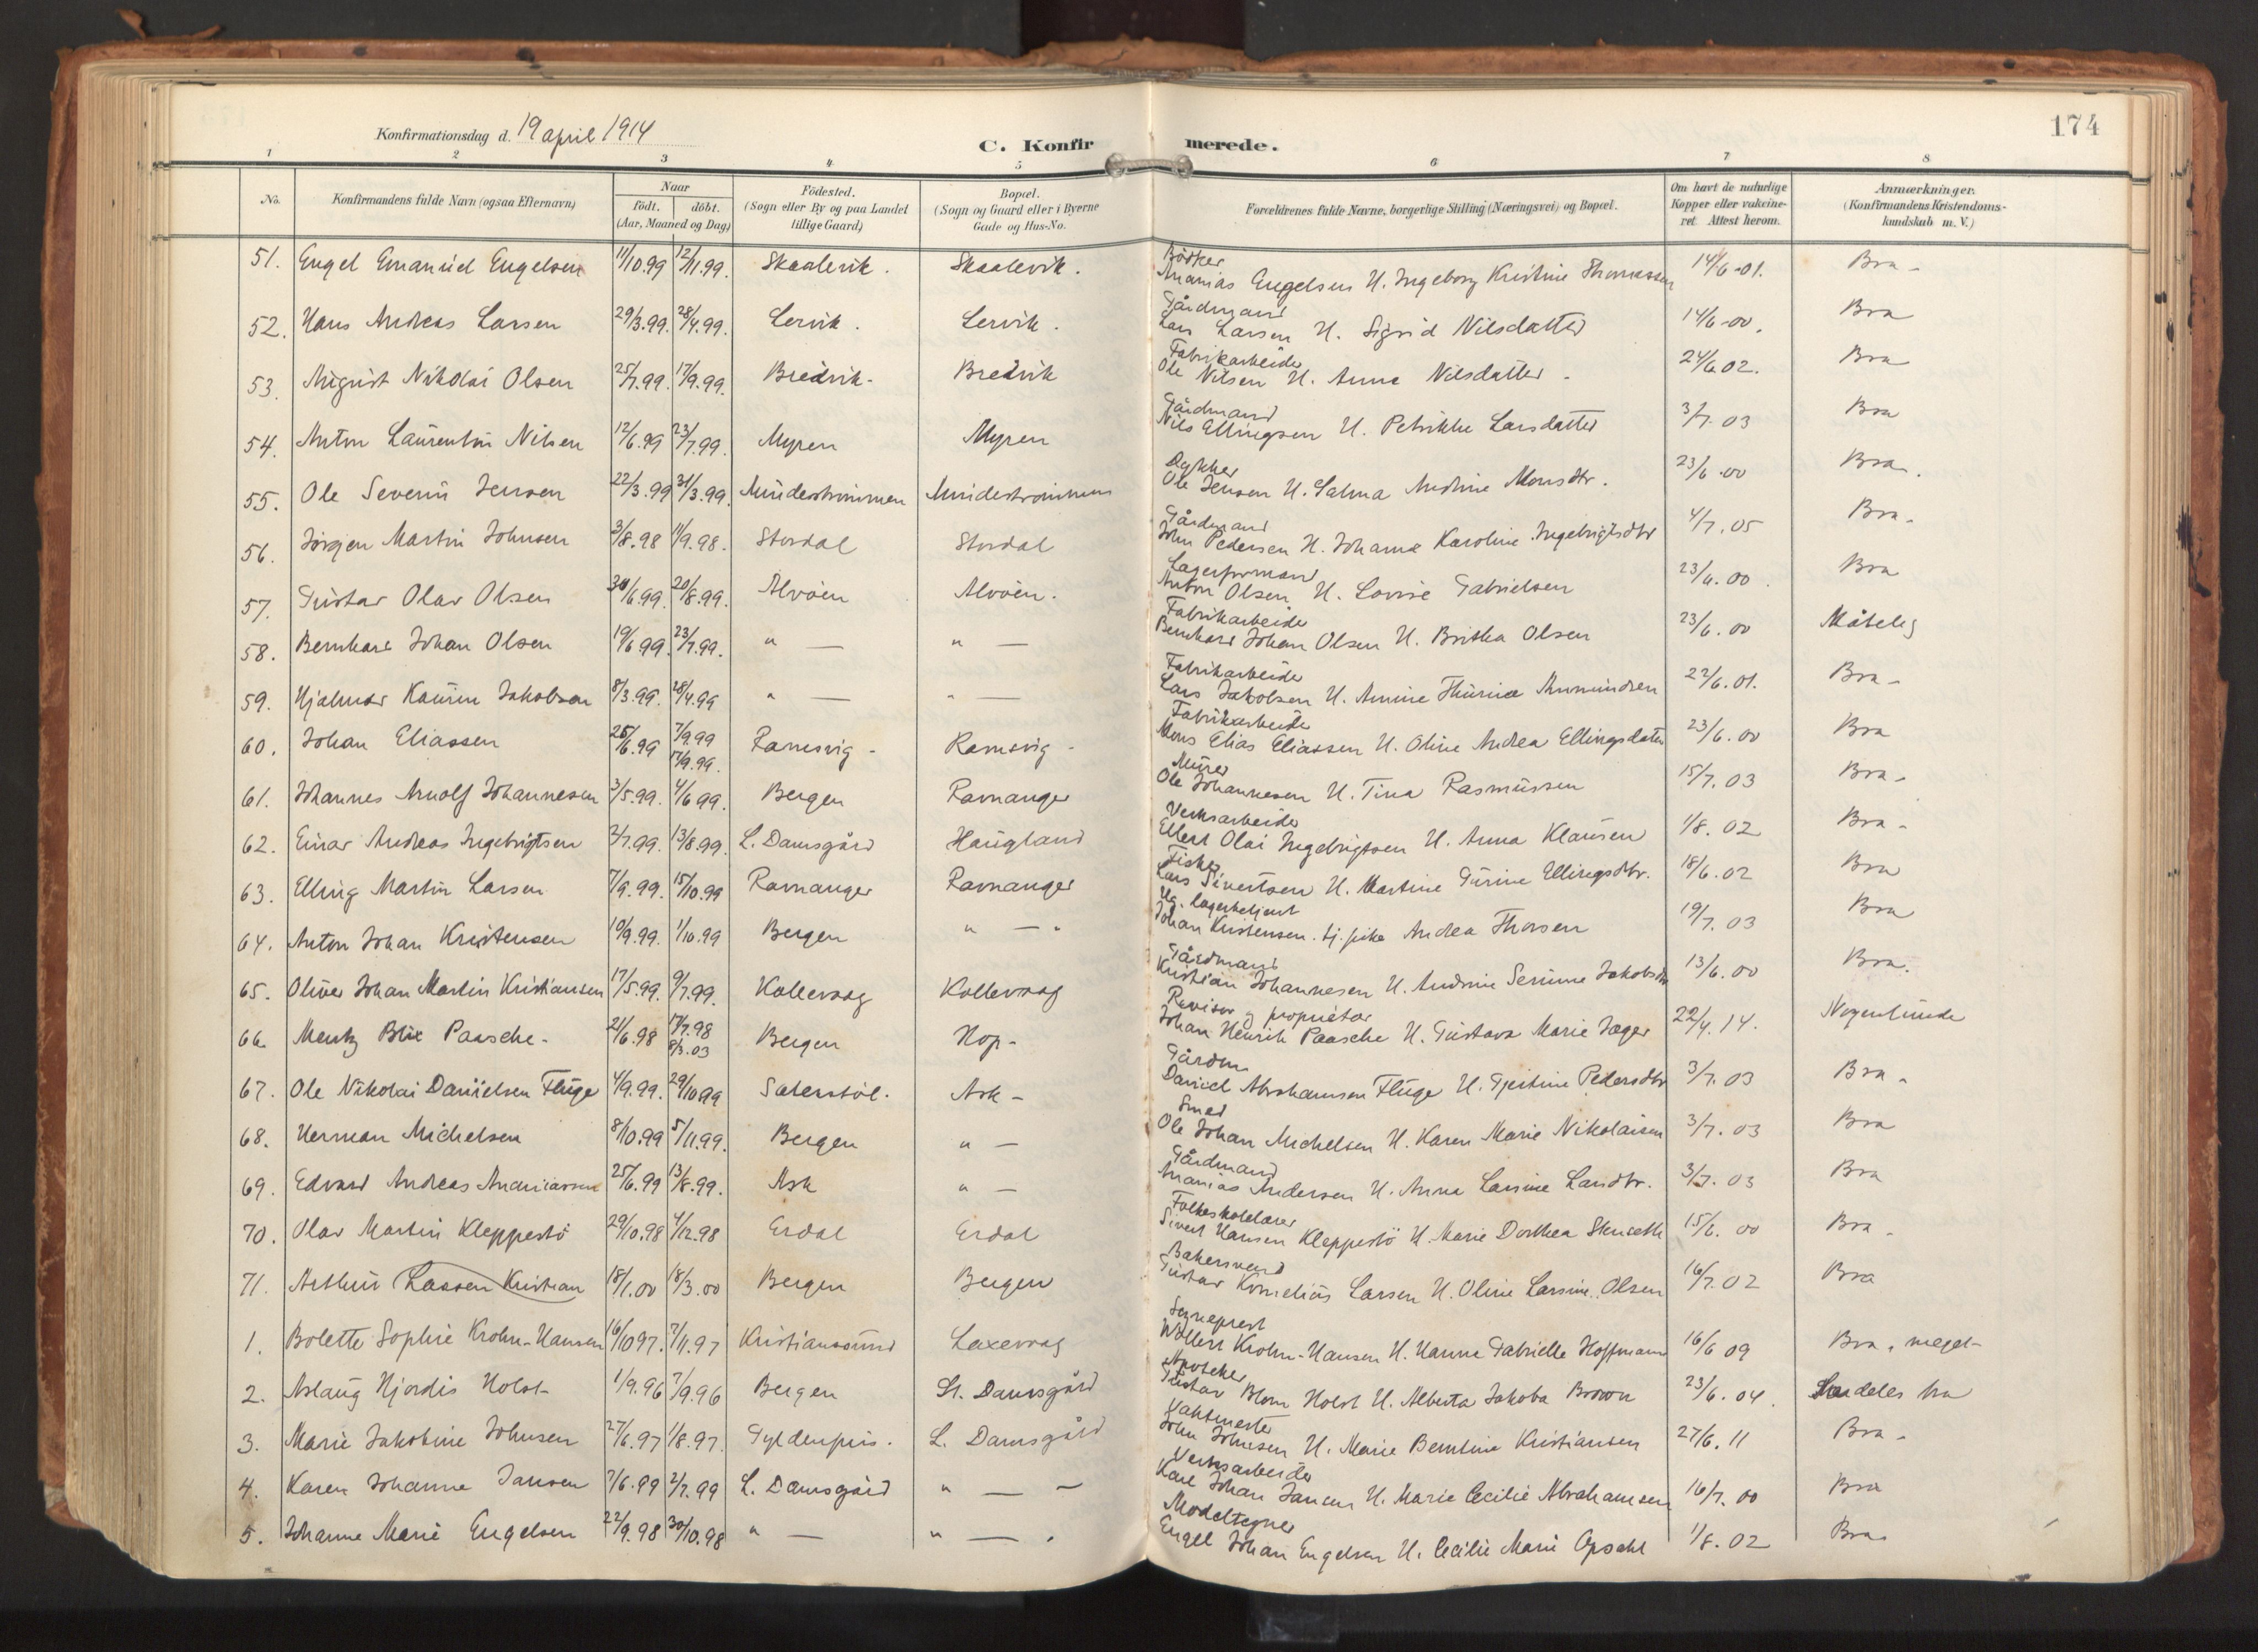 174
Konfirmationsdag d. 19 april 1914
C. Konfirmerede.
1 2 3 4 5 6 7 8
No. Konfirmandens fulde Navn (ogsaa Efternavn) Naar født. døbt. (Aar, Maaned og Dag) Födested. (Sogn eller By og paa Landet tillige Gaard) Bopæl. (Sogn og Gaard eller i Byerne Gade og Hus-No. Forældrenes fulde Navne, borgerlige Stilling (Næringsvei) og Bopæl. Om havt de naturlige Kopper eller vakcineret. Attest herom. Anmærkninger. (Konfirmandens Kristendomskundskab m. V.)
51. Engel Emanuel Engelsen 11/10.99 12/11.99. Skaalevik. Skaalevik. Bödker Ananias Engelsen H. Ingeborg Kristine Thomassen 14/6-01. Bra -
52. Hans Andreas Larsen 29/3.99. 28/4.99. Lervik. Lervik. Gårdmand Lars Larsen H. Sigrid Nilsdatter 14/6-00. Bra
53. August Nikolai Olsen 25/7.99. 17/9.99. Bredvik. Bredvik Fabrikarbeider Ole Nilsen H. Anna Nilsdatter. 24/6.02. Bra
54. Anton Laurentin Nilsen 12/6.99 23/7.99. Myren Myren Gårdmand Nils Ellingsen H. Petrikke Larsdatter 3/7.03 Bra
55. Ole Severin Jensen 22/3.99 31/3.99. Mindestrømmen Mindestrømmen Dykker Ole Jensen H. Salma Andrine Monsdtr. 23/6.00 Bra.
56. Jørgen Martin Johnsen 3/8.98 11/9.98. Stordal Stordal Gårdmand John Pedersen H. Johanna Karoline Ingebrigtsdtr 4/7.05 Bra.
57. Gustav Olav Olsen 30/6.99. 20/8.99. Alvöen Alvöen. Lagerformand Anton Olsen H. Lovise Gabrielsen 23/6.00. Bra
58. Bernhard Johan Olsen 19/6 99. 23/7.99. " — " — Fabrikarbeider Bernhard Johan Olsen H. Britha Olsen 23/6.00 Måtelig
59. Hjalmar Kaurin Jakobsen 8/3.99. 28/4.99 " — " — Fabrikarbeider Lars Jakobsen H. Amine Thurine Amundsen 22/6.01. Bra -
60. Johan Eliassen 25/6.99 7/9.99 17/9.99. Ramsvig - Ramsvig - Fabrikarbeide Mons Elias Eliassen H. Oline Andrea Ellingsdatter 23/6.00 Bra
61. Johannes Arnolf Johannesen 3/5.99. 4/6 99. Bergen Ravnanger Murer Ole Johannesen H. Tina Rasmussen 15/7.03 Bra.
62. Einar Andreas Ingebrigtsen 2/7.99. 13/8.99. L. Damsgård Haugland Verksarbeider Ellert Olai Ingebrigtsen H. Anna Klausen 1/8.02 Bra -
63. Elling Martin Larsen 7/9.99. 15/10.99 Ravnanger Ravnanger Fisker Lars Sivertsen H. Martine Gurine Ellingsdtr. 18/6.02 Bra
64. Anton Johan Kristensen 10/9.99. 1/10.99 Bergen " — " Ug. lagerbetjent Johan Kristensen. tj.pike Andrea Thorsen 19/7.03 Bra
65. Oliver Johan Martin Kristiansen 17/5.99. 9/7.99. Kollevaag Kollevaag Gårdmand Kristian Johannesen H. Andrine Serine Jakobsdtr 13/6.00 Bra.
66. Mentz Blix Paasche. 21/6.98 17/7.98 8/3.03 Bergen Hop - Revisor og proprietær Johan Henrik Paasche H. Gustava Marie Jæger 22/4.14. Nogenlunde
67. Ole Nikolai Danielsen Fluge 4/9.99. 29/10 99 Sæterstöl. Ask - Gårdm Daniel Abrahamsen Fluge H. Gjertine Pedersdtr 3/7.03 Bra.
68. Herman Michelsen 8/10.99 5/11.99. Bergen " — Smed Ole Johan Michelsen H. Karen Marie Nikolaisen 3/7.03 Bra
69. Edvard Andreas Andreassen 25/6.99 13/8.99. Ask " — Gårdmand Ananias Andersen H. Anna Larsine Larsdtr. 3/7.03 Bra
70. Olav Martin Kleppestö 29/10.98 4/12.98 Erdal Erdal Folkeskolelærer Sivert Hansen Kleppestö H. Marie Dorthea Stenseth 15/6.00 Bra.
71. Arthur Lassen Kristian 18/1.00 18/3.00 Bergen Bergen Bakersvend Gustav Kornelius Larsen H. Oline Larsine Olsen 16/7.02 Bra
1. Bolette Sophie Krohn-Hansen 16/10 97. 7/11.97 Kristianssund Laxevaag Sogneprest Willert Krohn-Hansen H. Hanna Gabrielle Hoffmann 16/6 09 Bra, meget -
2. Aslaug Hjordis Holst 1/9.96 7/9.96 Bergen St. Damsgård Apoteker Gustav Blom Holst H. Alberta Jakoba Brown 23/6.04. Særdeles bra
3. Marie Jakobine Johnsen 27/6.97 1/8.97. Gyldenpris. L. Damsgård Vaktmester John Johnsen H. Marie Berntine Kristiansen 27/6.11 Bra -
4. Karen Johanne Jansen 7/6.99 2/7.99 L. Damsgård " — Verksarbeider Karl Johan Jansen H. Marie Cecilie Abrahamsen 16/7.00 Bra
5. Johanne Marie Engelsen 22/9.98 30/10.98 " — " — . Modeltegner Engel Johan Engelsen H. Cecilie Marie Opsahl 1/8.02 Bra